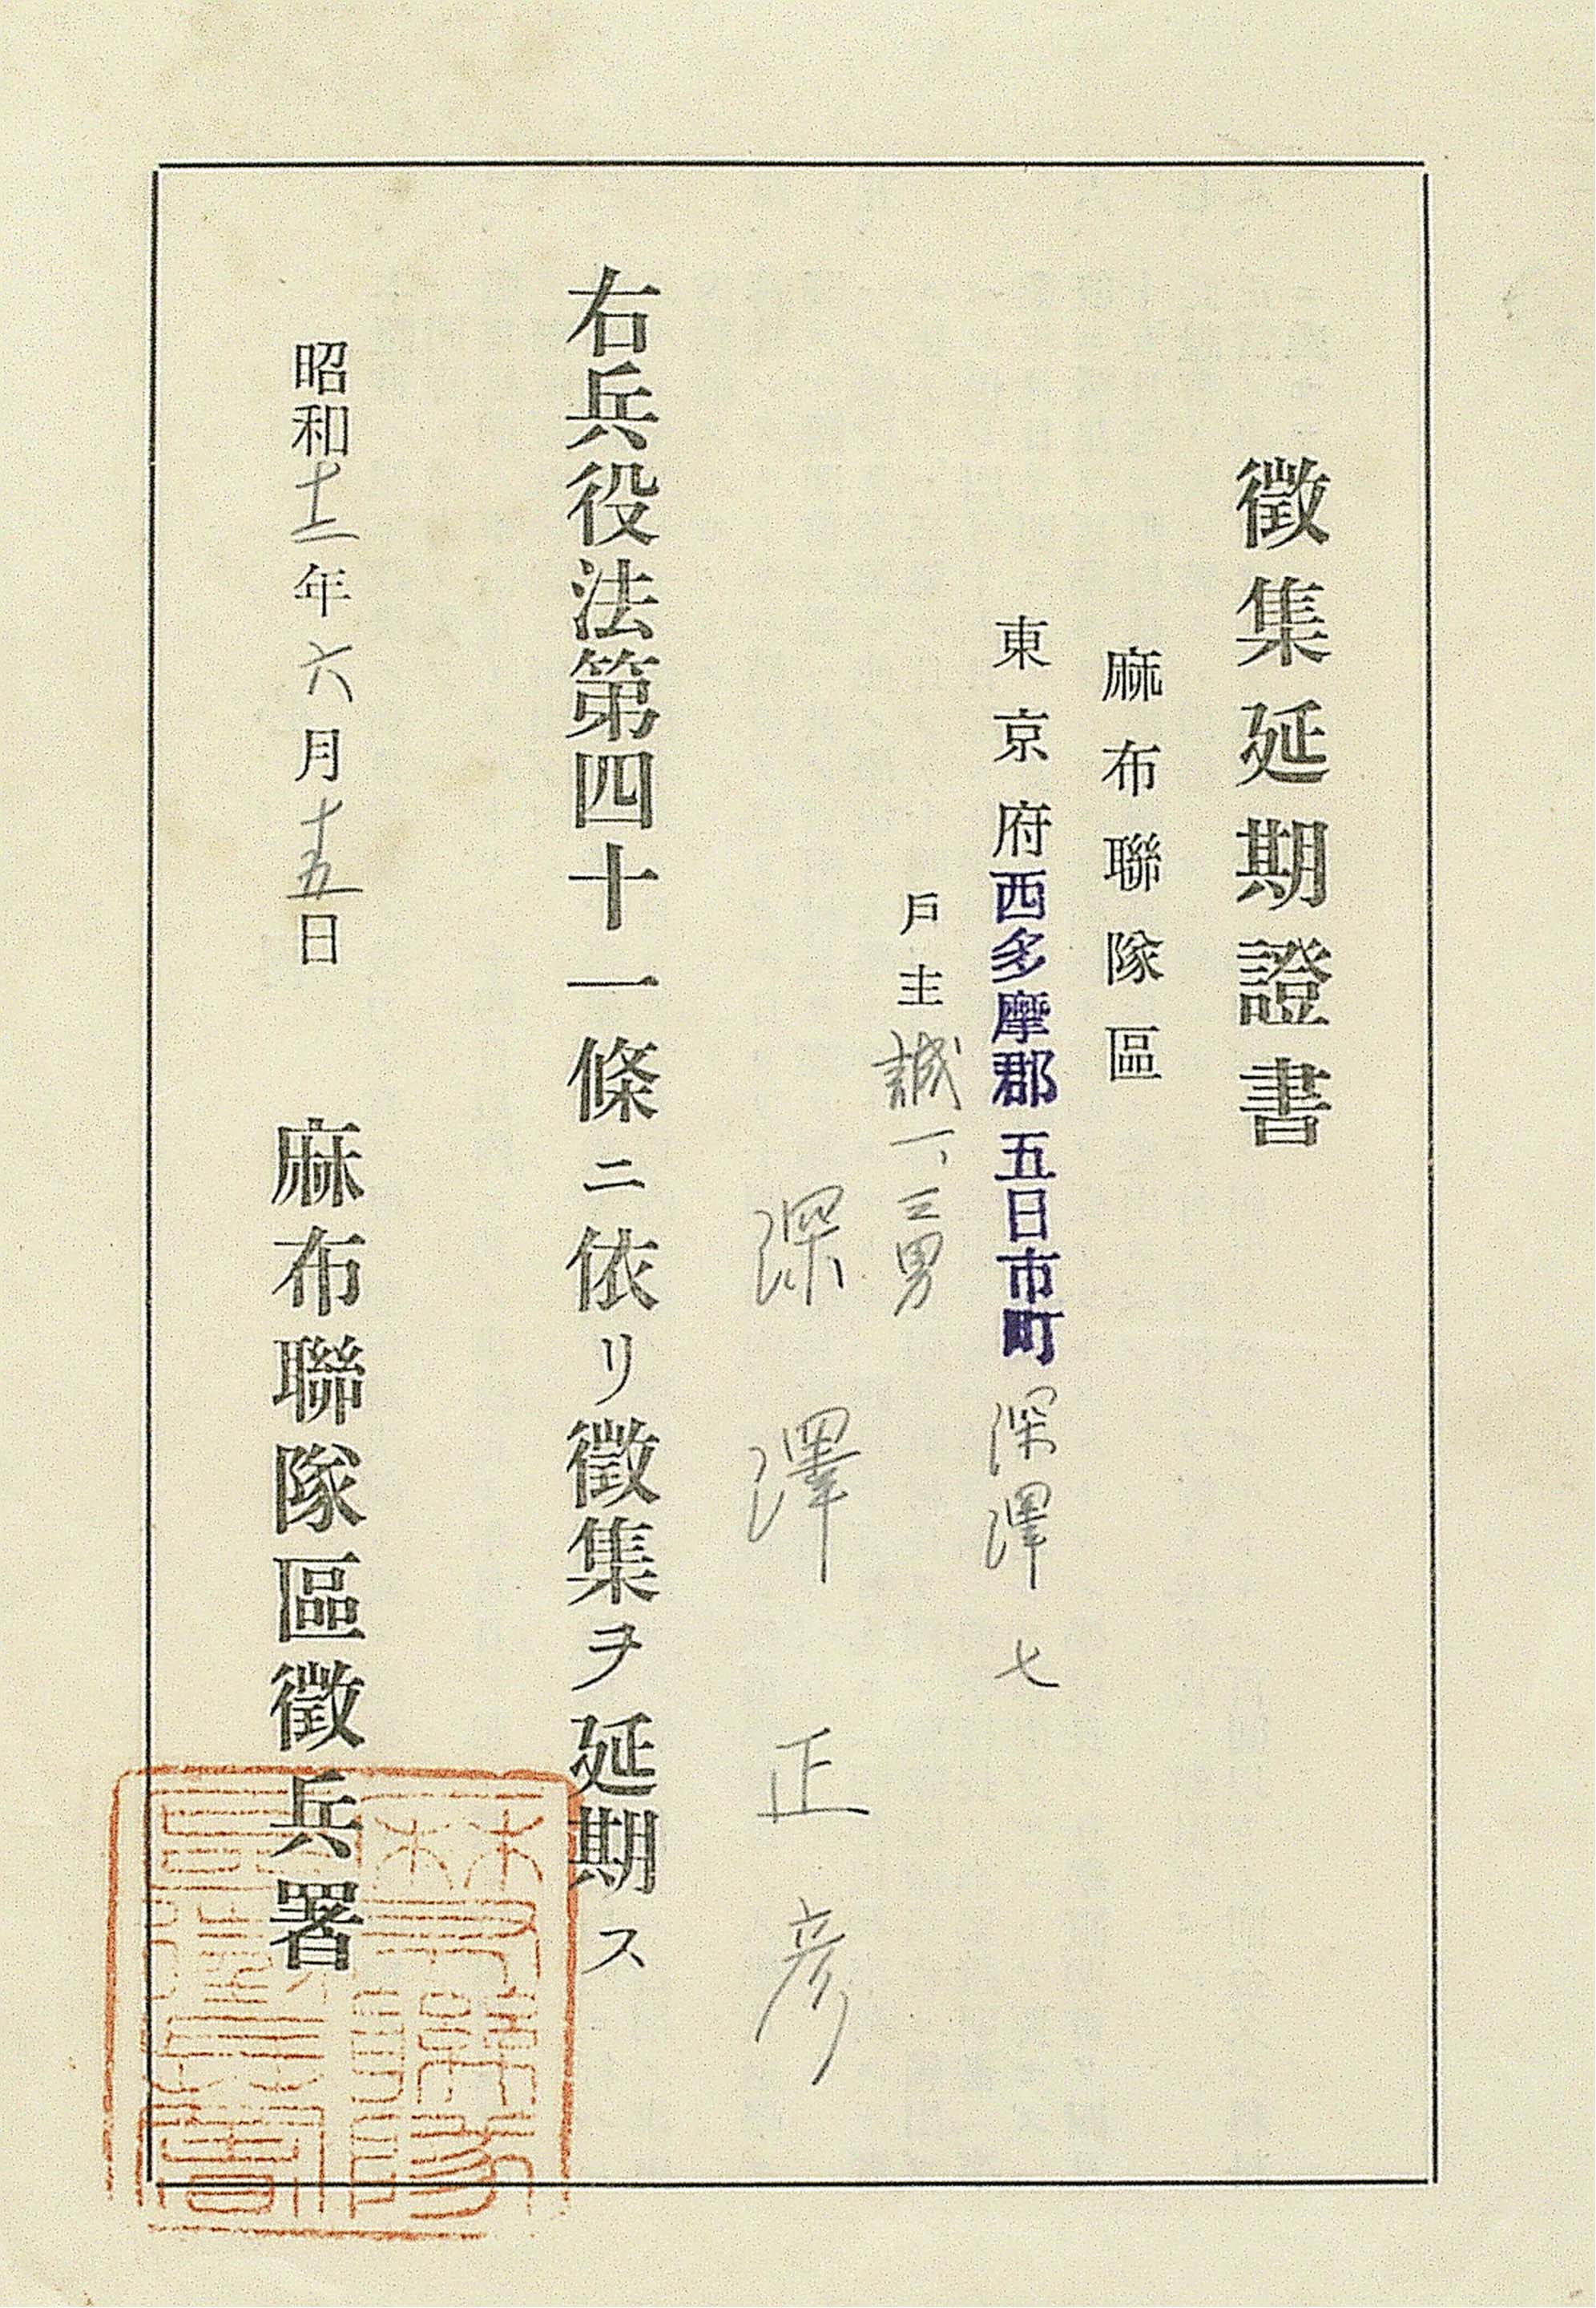 徵集延期證書
麻布聯隊區
東京府西多摩郡五日市町深澤七
戶主誠一、三男
深澤正彦
右兵役法第四十一條ニ依リ徵集ヲ延期ス
昭和十二年六月十五日
麻布聯隊區徵兵署